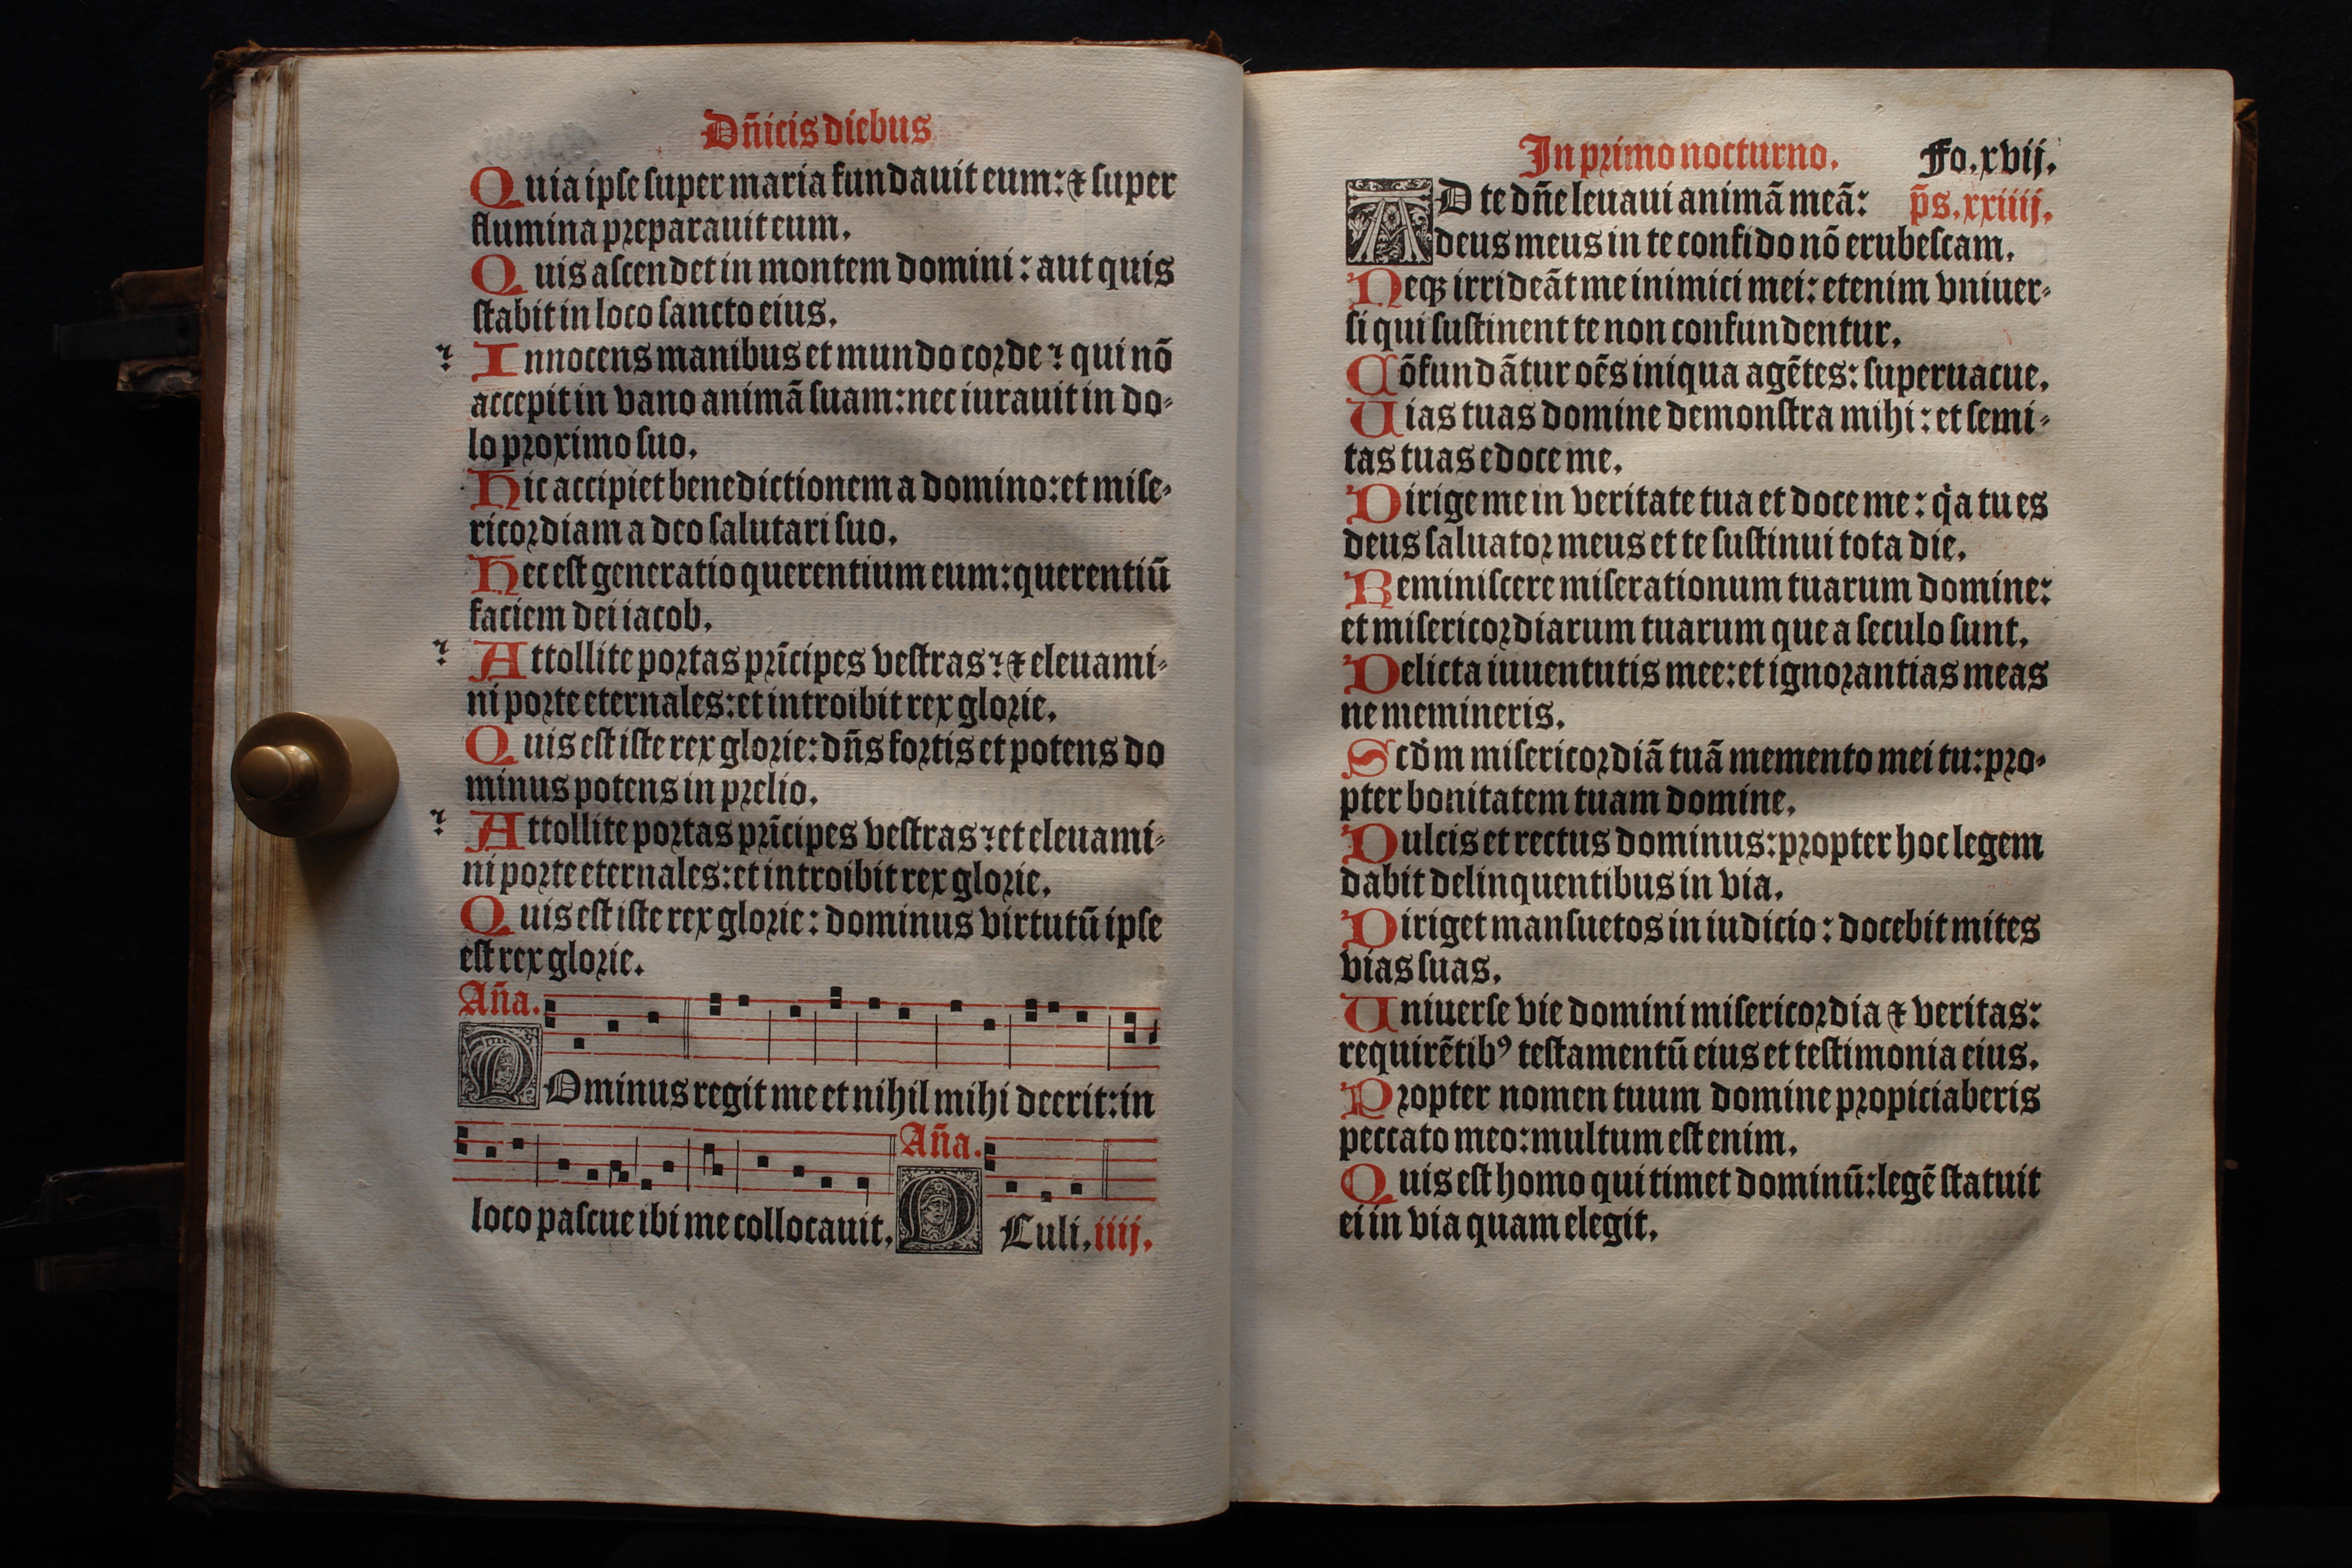 Dn̄icis diebus
Quia ipse super maria fundauit eum: ⁊ super
flumina preparauit eum.
Quis ascendet in montem domini: aut quis
stabit in loco sancto eius.
Innocens manibus et mundo corde: qui nō
accepit in vano animā suam: nec iurauit in do-
lo proximo suo.
Hic accipiet benedictionem a domino: et mise-
ricordiam a deo salutari suo.
Hec est generatio querentium eum: querentiū
faciem dei iacob.
Attollite portas prīcipes vestras: ⁊ eleuami-
ni porte eternales: et introibit rex glorie.
Quis est iste rex glorie: dn̄s fortis et potens do
minus potens in prelio.
Attollite portas prīcipes vestras: et eleuami-
ni porte eternales: et introibit rex glorie.
Quis est iste rex glorie: dominus virtutū ipse
est rex glorie.
An̄a.
DOminus regit me et nihil mihi deerit: in
An̄a.
loco pascue ibi me collocauit. OCuli. iiij.
In primo nocturno. Fo. xvij.
AD te dn̄e leuaui animā meā: p̄s. xxiiij.
deus meus in te confido nō erubescam.
Neqꝫ irrideāt me inimici mei: etenim vniuer-
si qui sustinent te non confundentur.
Cōfundātur oēs iniqua agētes: superuacue.
Uias tuas domine demonstra mihi: et semi-
tas tuas edoce me.
Dirige me in veritate tua et doce me: qͥa tu es
deus saluator meus et te sustinui tota die.
Reminiscere miserationum tuarum domine:
et misericordiarum tuarum que a seculo sunt.
Delicta iuuentutis mee: et ignorantias meas
ne memineris.
Scd̄m misericordiā tuā memento mei tu: pro-
pter bonitatem tuam domine.
Dulcis et rectus dominus: propter hoc legem
dabit delinquentibus in via.
Diriget mansuetos in iudicio: docebit mites
vias suas.
Uniuerse vie domini misericordia ⁊ veritas:
requirētibꝰ testamentū eius et testimonia eius.
Propter nomen tuum domine propiciaberis
peccato meo: multum est enim.
Quis est homo qui timet dominū: legē statuit
ei in via quam elegit.